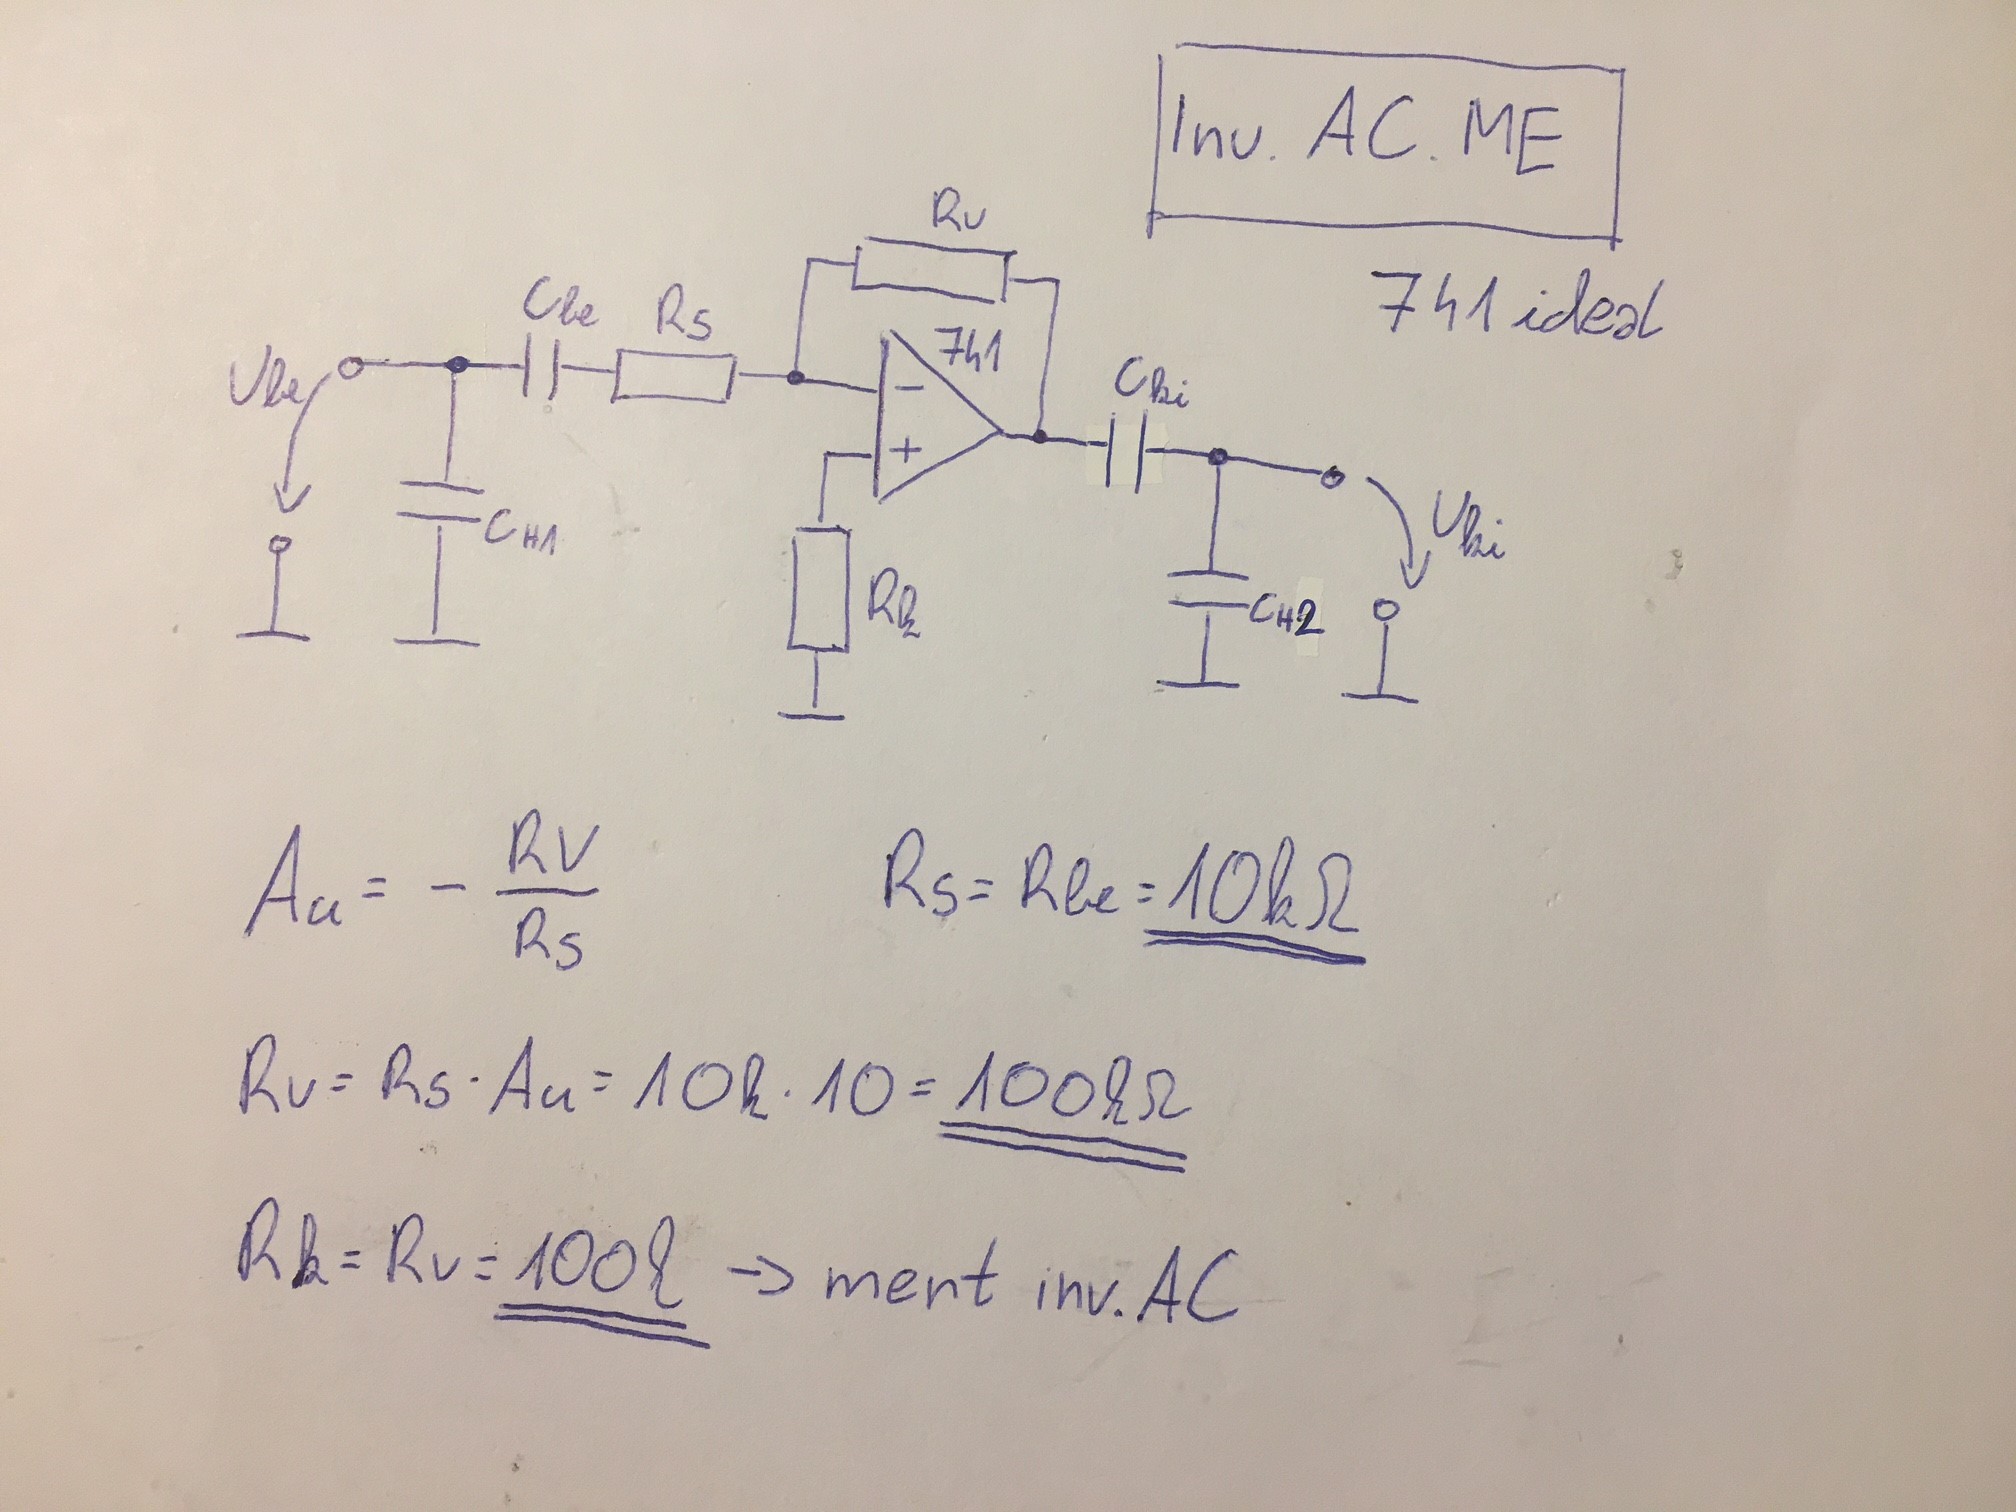 Inv. AC. ME
741 ideal
Rv
Cbe
Rs
741
Ube
Cki
CH1
Uki
Rk
CH2
Au = - RV / Rs
Rs = Rbe = 10kΩ
Rv = Rs · Au = 10k · 10 = 100kΩ
Rk = Rv = 100k → mert inv. AC